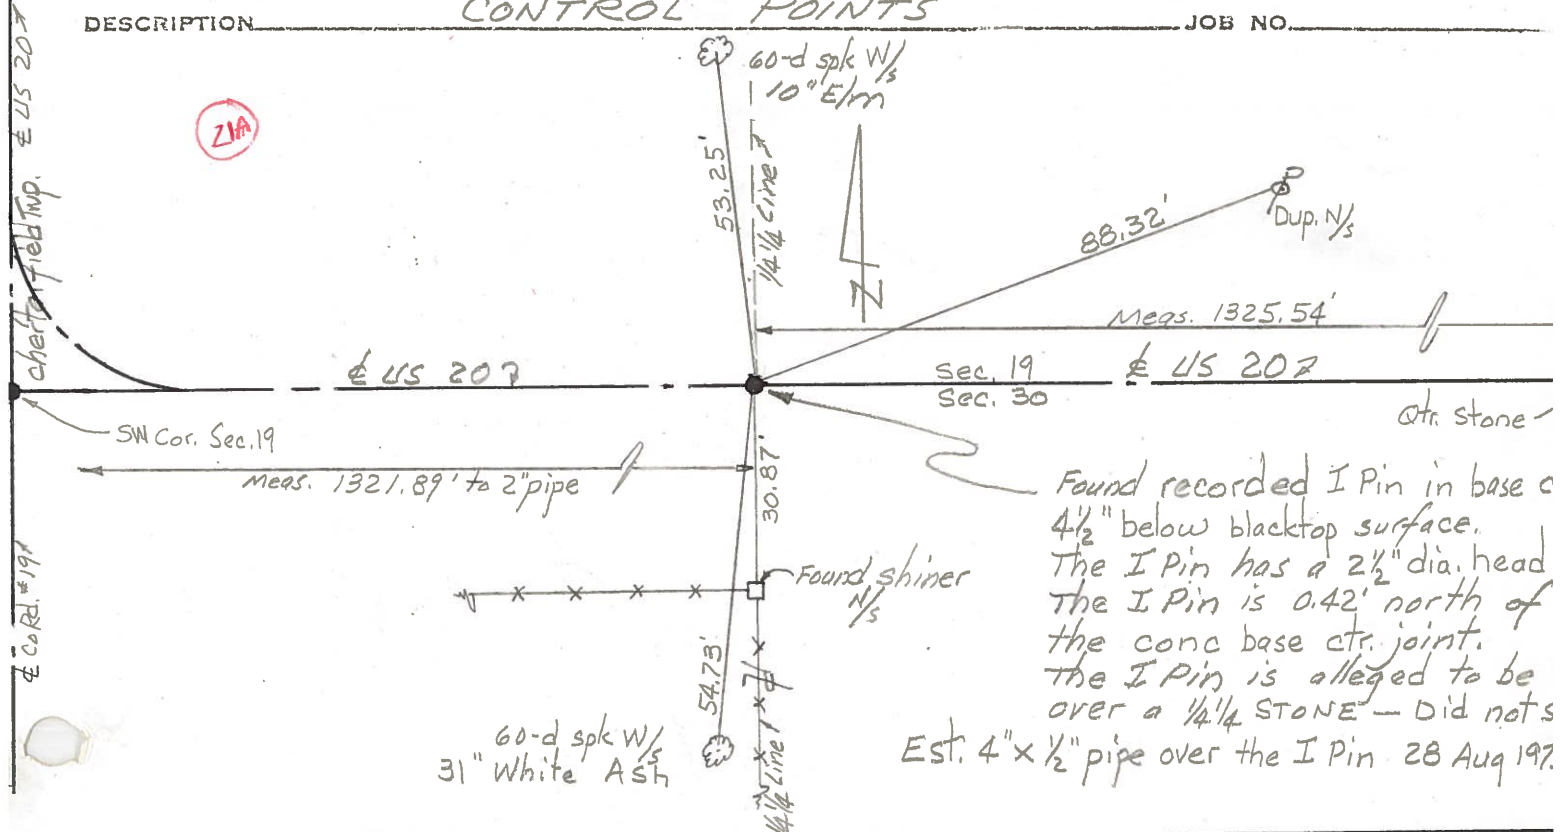 CONTROL POINTS
DESCRIPTION
JOB NO.
℄ US 20
Twp.
21A
60-d spk W/s
10" Elm
53.25'
1/4 1/4 Line
N
88.32'
Dup. N/s
Meas. 1325.54'
℄ US 20
Sec. 19
Sec. 30
℄ US 20
Qtr. Stone
SW Cor. Sec. 19
Meas. 1321.89' to 2" pipe
30.87'
Found shiner
N/s
54.73'
60-d spk W/s
31" White Ash
1/4 1/4 Line
℄ Co Rd. #19
Found recorded I Pin in base
4 1/2" below blacktop surface.
The I Pin has a 2 1/2" dia. head
The I Pin is 0.42' north of
the conc base ctr. joint.
The I Pin is alleged to be
over a 1/4 1/4 STONE — Did not
Est. 4" x 1/2" pipe over the I Pin 28 Aug 197